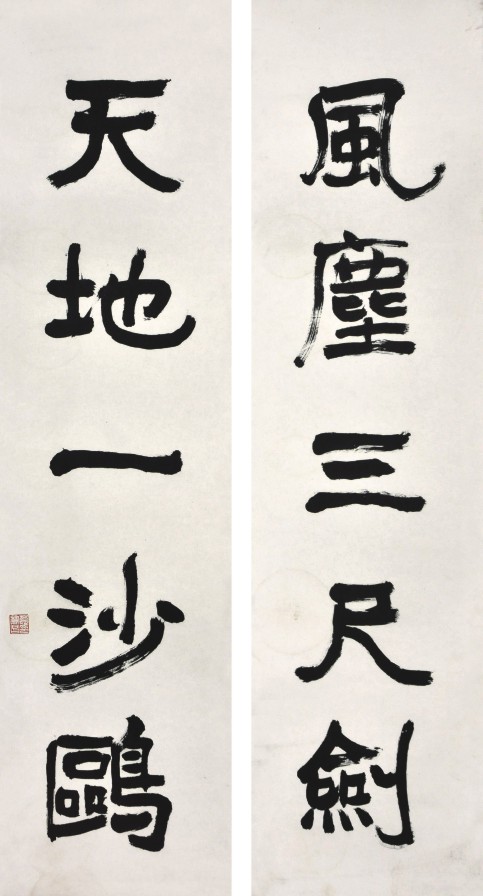 風塵三尺劍
天地一沙鷗